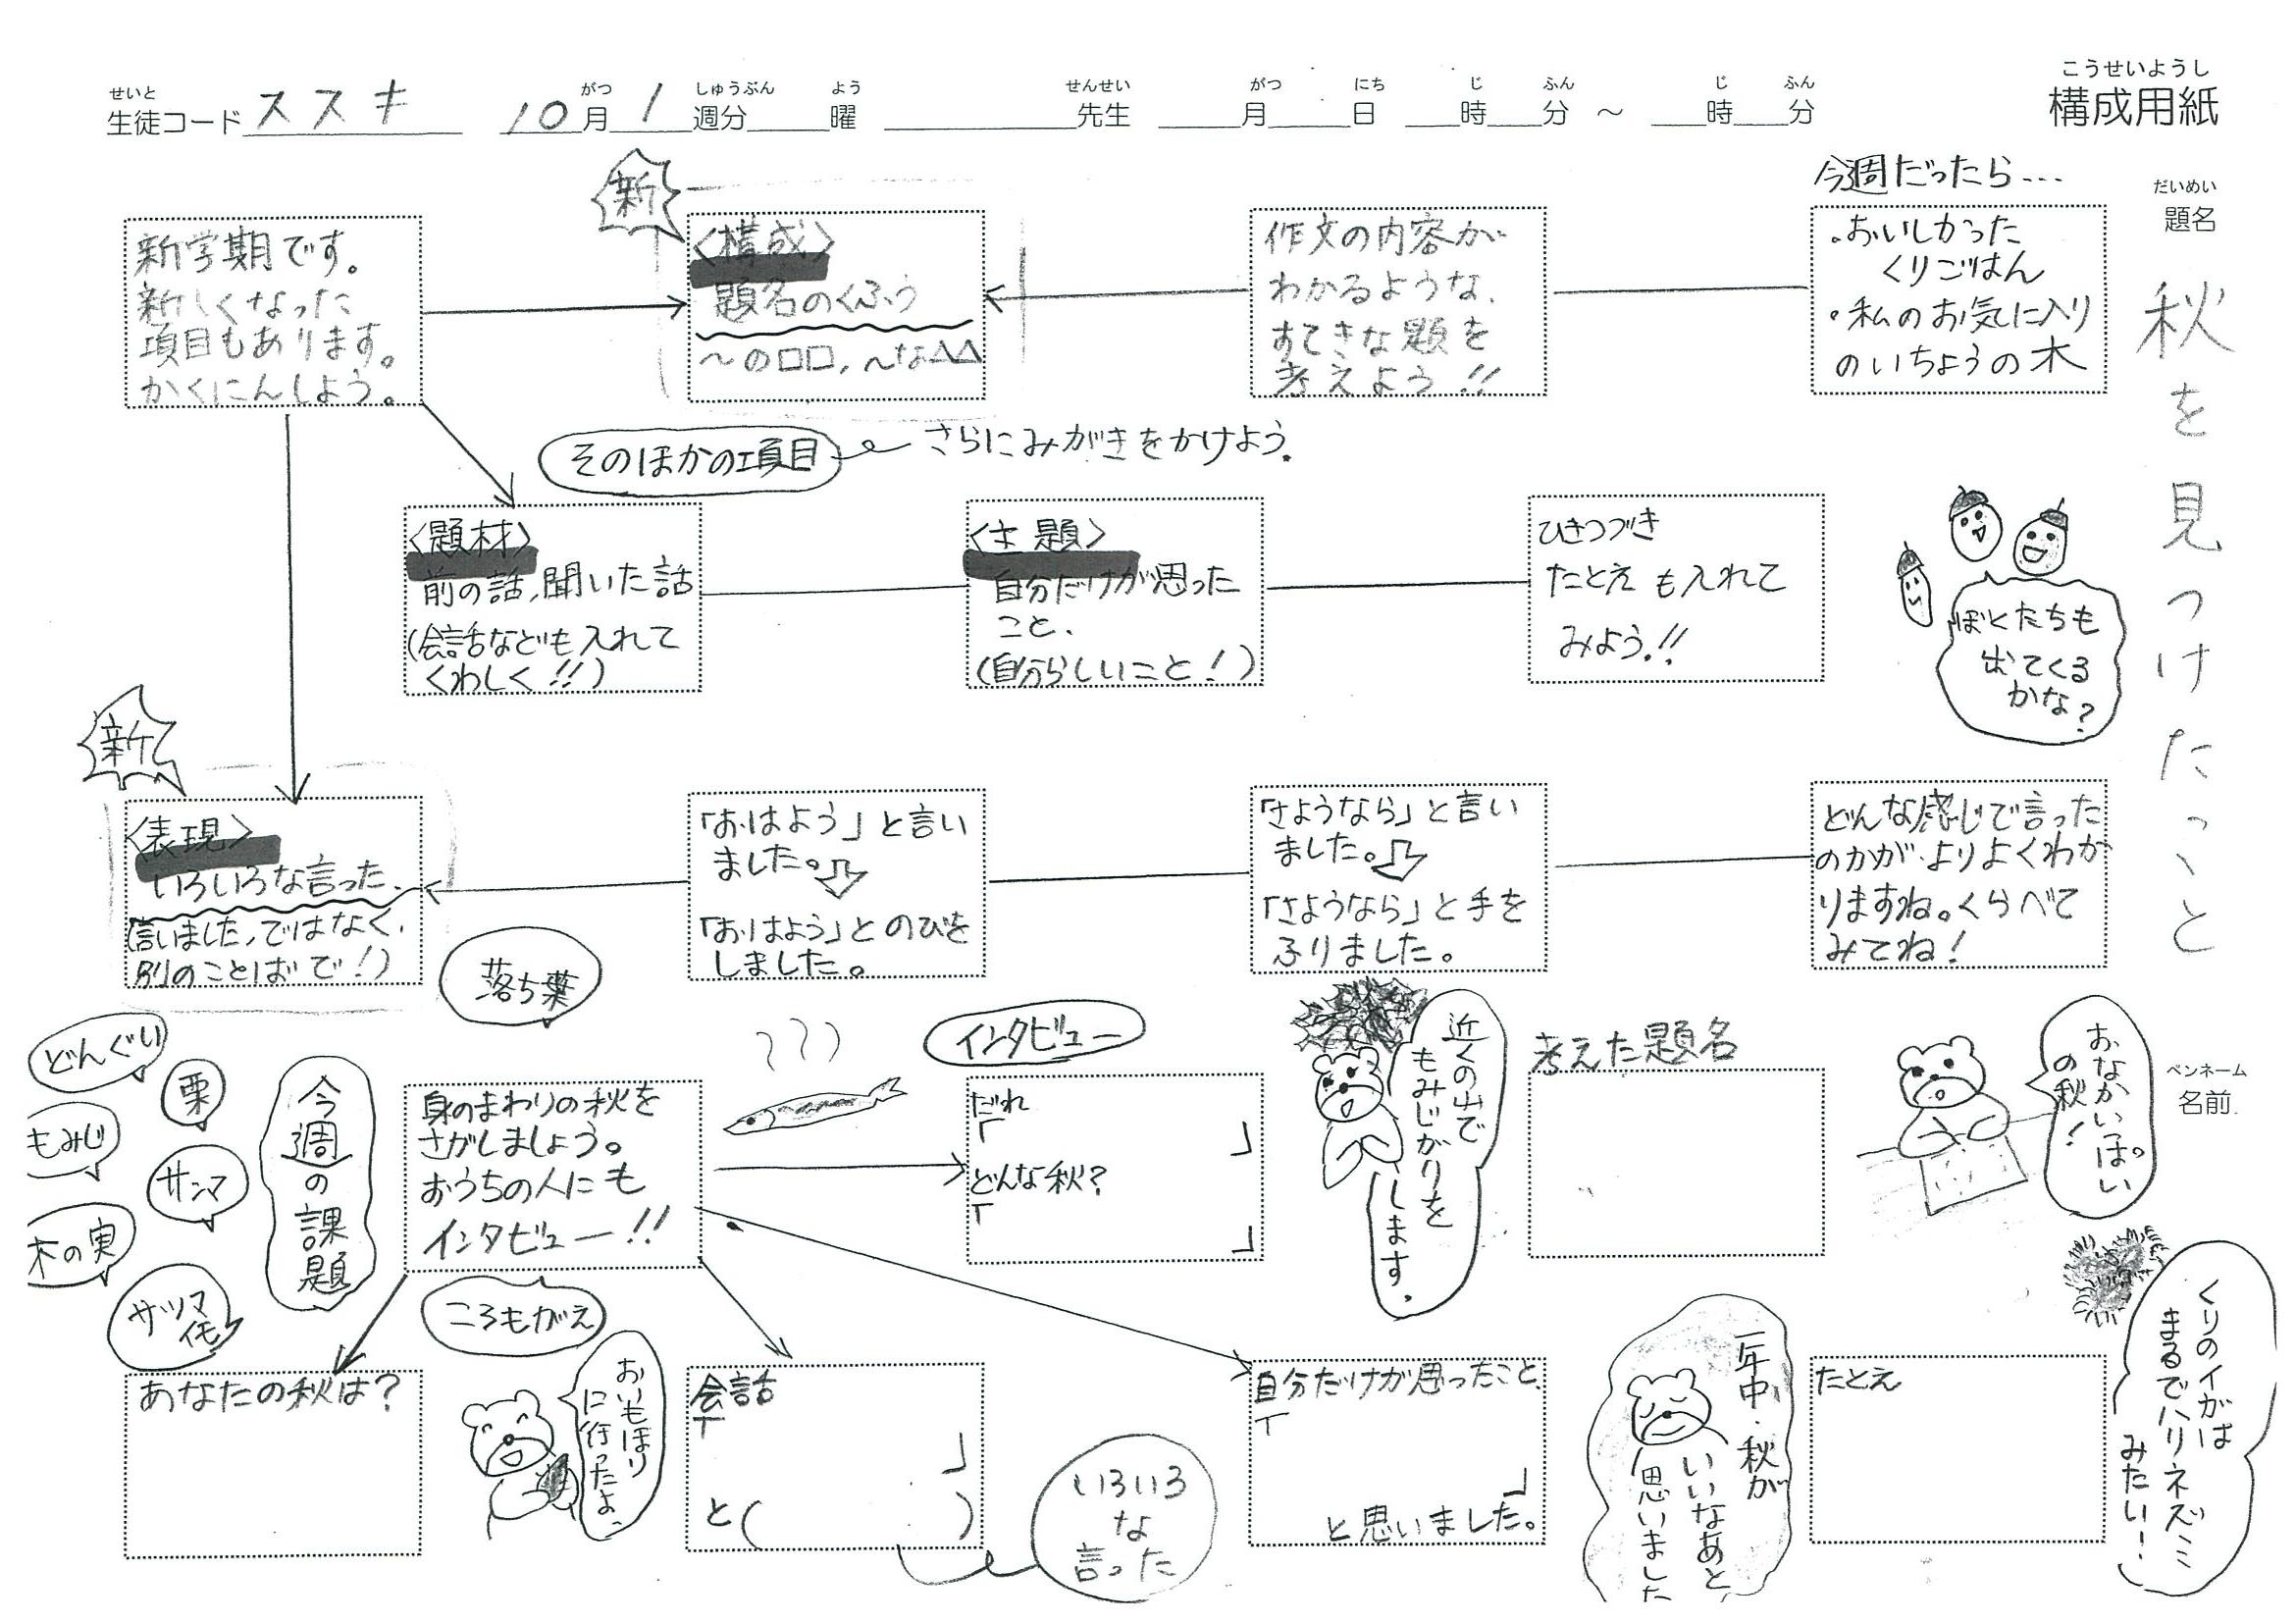 こうせいようし
構成用紙
せいと
生徒コード ススキ
がつ しゅうぶん よう
10月1週分 曜
せんせい
先生
がつ にち じ ふん じ ふん
月 日 時 分 ～ 時 分
だいめい
題名
秋を見つけたこと
ペンネーム
名前
新学期です。
新しくなった
項目もあります。
かくにんしよう。
新
〈構成〉
題名のくふう
～の□□，～な△△
作文の内容が
わかるような、
すてきな題を
考えよう!!
今週だったら...
・おいしかった
くりごはん
・私のお気に入り
のいちょうの木
そのほかの項目
さらにみがきをかけよう.
〈題材〉
前の話,聞いた話
(会話なども入れて
くわしく!!)
〈主題〉
自分だけが思った
こと、
(自分らしいこと!)
ひきつづき
たとえも入れて
みよう!!
ぼくたちも
出てくる
かな?
新
〈表現〉
いろいろな言った、
(言いました,ではなく、
別のことばで!)
「おはよう」と言い
ました。
「おはよう」とのびを
しました。
「さようなら」と言い
ました。
「さようなら」と手を
ふりました。
どんな感じで言った
のかが、よりよくわか
りますね。くらべて
みてね!
落ち葉
どんぐり
栗
もみじ
サンマ
木の実
サツマ
イモ
今週の課題
身のまわりの秋を
さがしましょう。
おうちの人にも
インタビュー!!
ころもがえ
インタビュー
だれ
「 」
どんな秋?
「 」
近くの山で
もみじがりを
します.
考えた題名
おなかいっぱい
の秋!
あなたの秋は?
おいもほり
に行ったよ.
会話
「 」
と( )
いろいろ
な
言った
自分だけが思ったこと、
「 」
と思いました。
一年中、秋が
いいなあと
思いました
たとえ
くりのイガは
まるでハリネズミ
みたい!